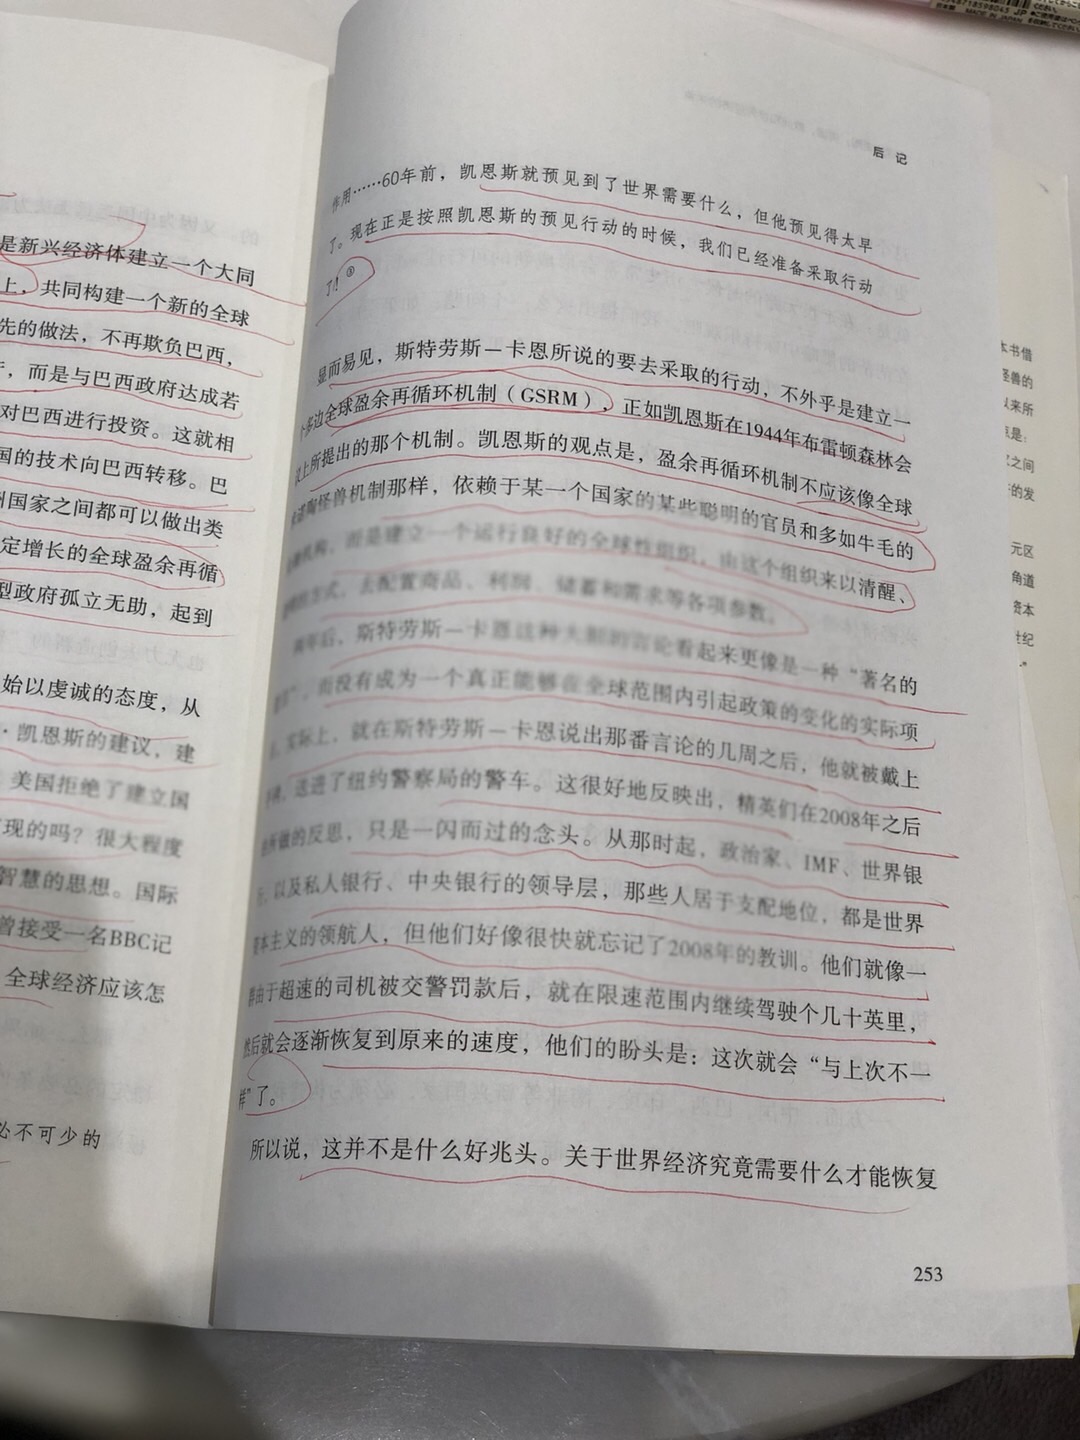 是新兴经济体建立一个大同
上，共同构建一个新的全球
先的做法，不再欺负巴西，
，而是与巴西政府达成若
对巴西进行投资。这就相
国的技术向巴西转移。巴
州国家之间都可以做出类
定增长的全球盈余再循
型政府孤立无助，起到
始以虔诚的态度，从
·凯恩斯的建议，建
美国拒绝了建立国
现的吗？很大程度
智慧的思想。国际
曾接受一名BBC记
全球经济应该怎
必不可少的
后 记
作用……60年前，凯恩斯就预见到了世界需要什么，但他预见得太早
了。现在正是按照凯恩斯的预见行动的时候，我们已经准备采取行动
了！
显而易见，斯特劳斯－卡恩所说的要去采取的行动，不外乎是建立一
个多边全球盈余再循环机制（GSRM），正如凯恩斯在1944年布雷顿森林会
议上所提出的那个机制。凯恩斯的观点是，盈余再循环机制不应该像全球
陶怪兽机制那样，依赖于某一个国家的某些聪明的官员和多如牛毛的
机构，而是建立一个运行良好的全球性组织，由这个组织来以清醒、
的方式，去配置商品、利润、储蓄和需求等各项参数。
两年后，斯特劳斯－卡恩这种大胆的言论看起来更像是一种“著名的
”，而没有成为一个真正能够在全球范围内引起政策的变化的实际项
实际上，就在斯特劳斯－卡恩说出那番言论的几周之后，他就被戴上
送进了纽约警察局的警车。这很好地反映出，精英们在2008年之后
所做的反思，只是一闪而过的念头。从那时起，政治家、IMF、世界银
以及私人银行、中央银行的领导层，那些人居于支配地位，都是世界
资本主义的领航人，但他们好像很快就忘记了2008年的教训。他们就像一
群由于超速的司机被交警罚款后，就在限速范围内继续驾驶个几十英里，
然后就会逐渐恢复到原来的速度，他们的盼头是：这次就会“与上次不一
样”了。
所以说，这并不是什么好兆头。关于世界经济究竟需要什么才能恢复
253
本书借
怪兽的
以来所
点是：
家之间
的发
元区
角道
资本
世纪
MADE IN JAPAN